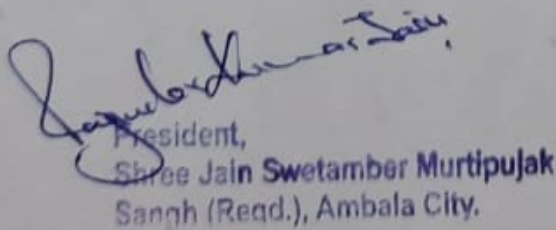 Kumar Jain
President,
Shree Jain Swetamber Murtipujak
Sangh (Regd.), Ambala City.